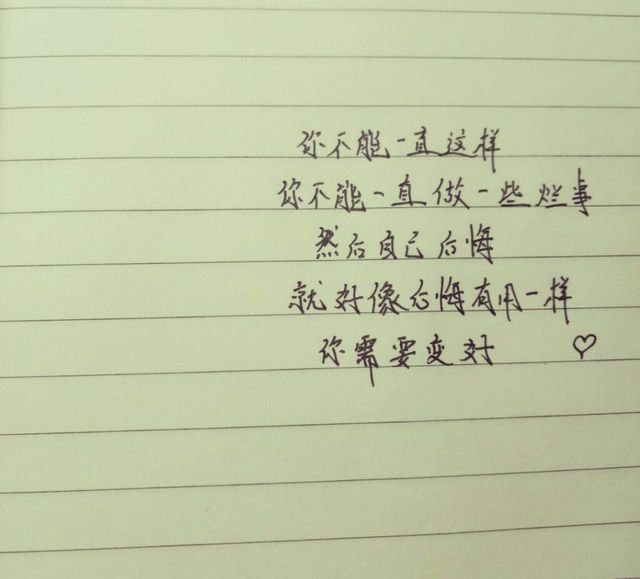 你不能一直这样
你不能一直做一些烂事
然后自己后悔
就好像后悔有用一样
你需要变好 ♡